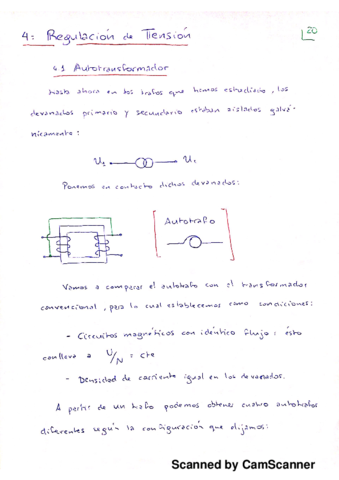 4: Regulación de Tensión
20
4.1 Autotransformador
Hasta ahora en los trafos que hemos estudiado, los
devanados primario y secundario estaban aislados galvá-
nicamente:
U₁ U₁
Ponemos en contacto dichos devanados:
Autotrafo
Vamos a comparar el autotrafo con el transformador
convencional, para lo cual establecemos como condiciones:
- Circuitos magnéticos con idéntico flujo: ésto
conlleva a U/N = cte
- Densidad de corriente igual en los devanados.
A partir de un trafo podemos obtener cuatro autotrafos
diferentes según la configuración que elijamos:
Scanned by CamScanner